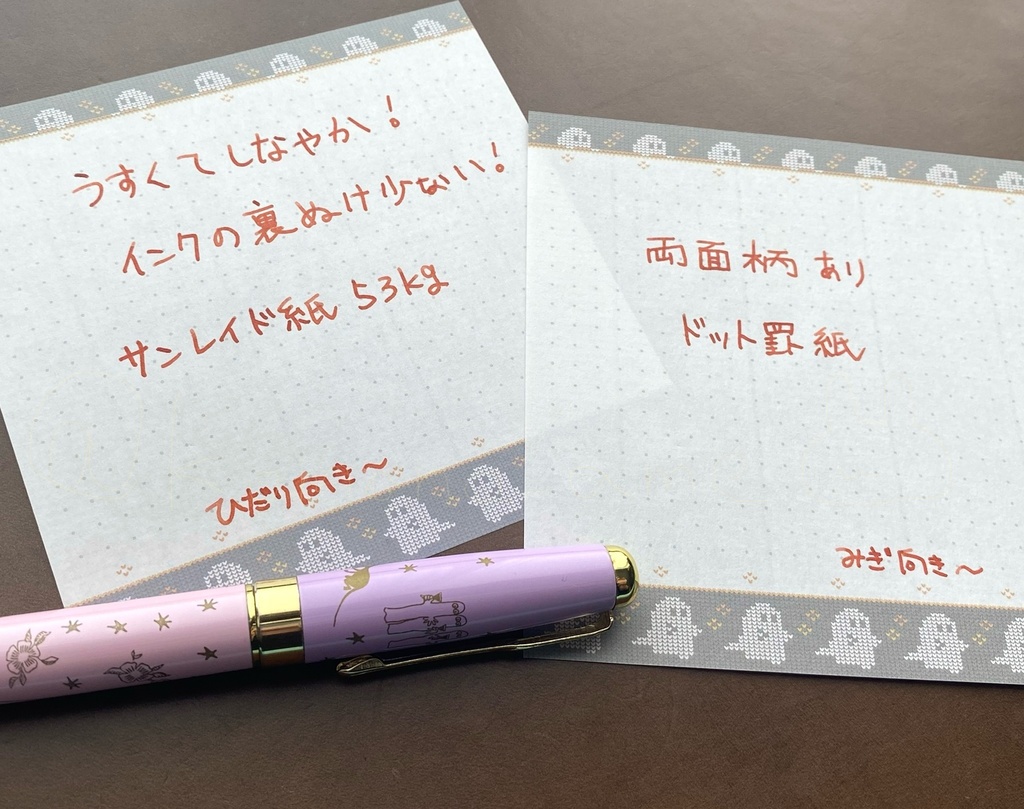 うすくてしなやか!
インクの裏ぬけ少ない!
サンレイド紙 53kg
ひだり向き〜
両面柄あり
ドット罫紙
みぎ向き〜